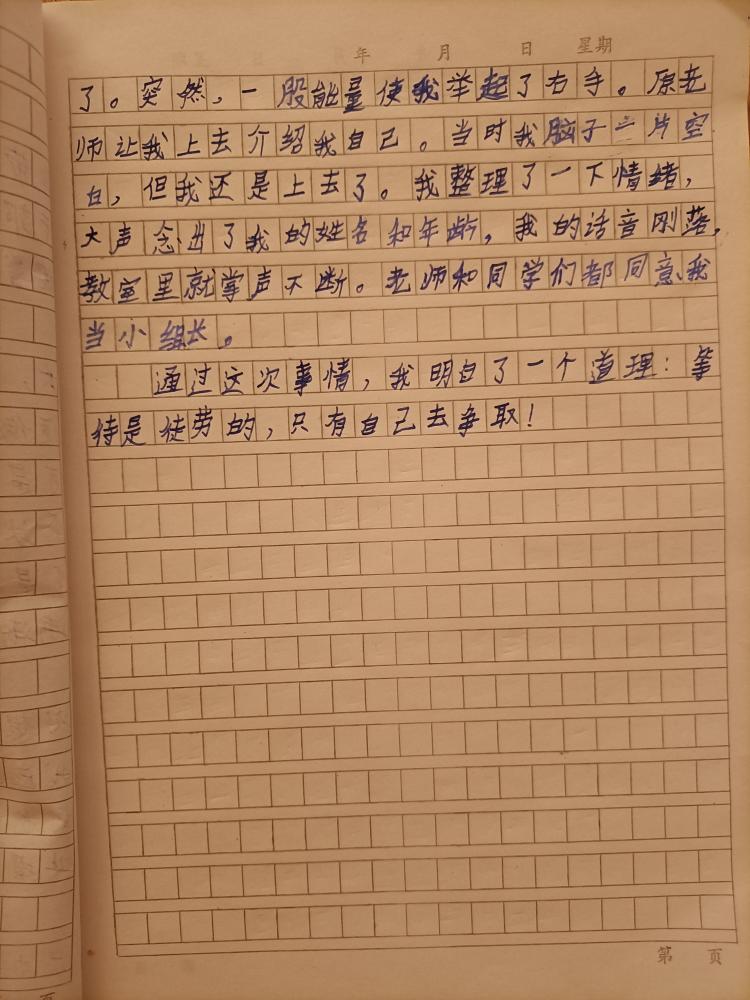 年 月 日 星期
了。突然，一股能量使我举起了右手。原老
师让我上去介绍我自己。当时我脑子一片空
白，但我还是上去了。我整理了一下情绪，
大声念出了我的姓名和年龄，我的话音刚落，
教室里就掌声不断。老师和同学们都同意我
当小组长。
通过这次事情，我明白了一个道理：等
待是徒劳的，只有自己去争取！
第 页
页